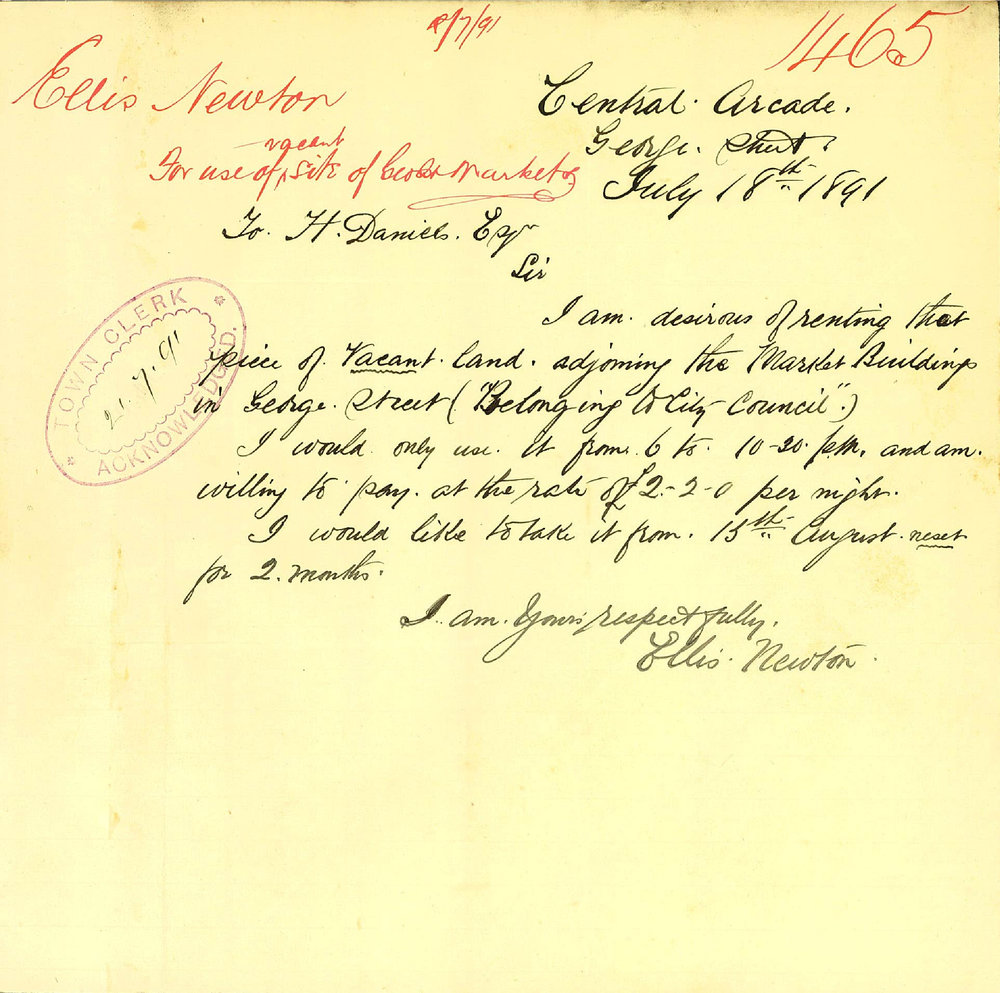 1465
Ellis Newton
For use of vacant site of Market
Central Arcade.
George Street
July 18th 1891
To. H. Daniels. Esqr
Sir
I am desirous of renting that
piece of Vacant Land. adjoining the Market Buildings
in George Street ("Belonging to City Council".)
I would only use it from 6 to 10-30 p.m. and am
willing to pay at the rate of £2-2-0 per night.
I would like to take it from 15th August next
for 2 months.
I am Yours respectfully,
Ellis Newton.
TOWN CLERK
21.7.91
ACKNOWLEDGED.